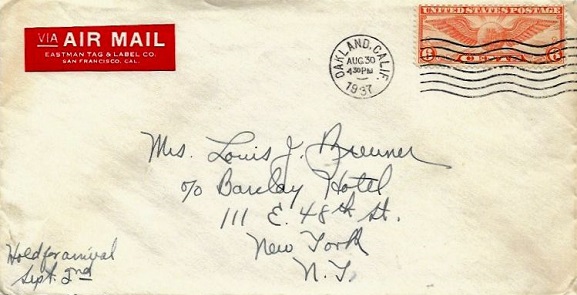 VIA AIR MAIL
EASTMAN TAG & LABEL CO.
SAN FRANCISCO, CAL.
UNITED STATES POSTAGE
6 CENTS 6
OAKLAND, CALIF.
AUG 30
4 30 PM
1937
Mrs. Louis J. Breuner
c/o Barclay Hotel
111 E. 48th St.
New York
N.Y.
Hold for arrival
Sept. 2nd